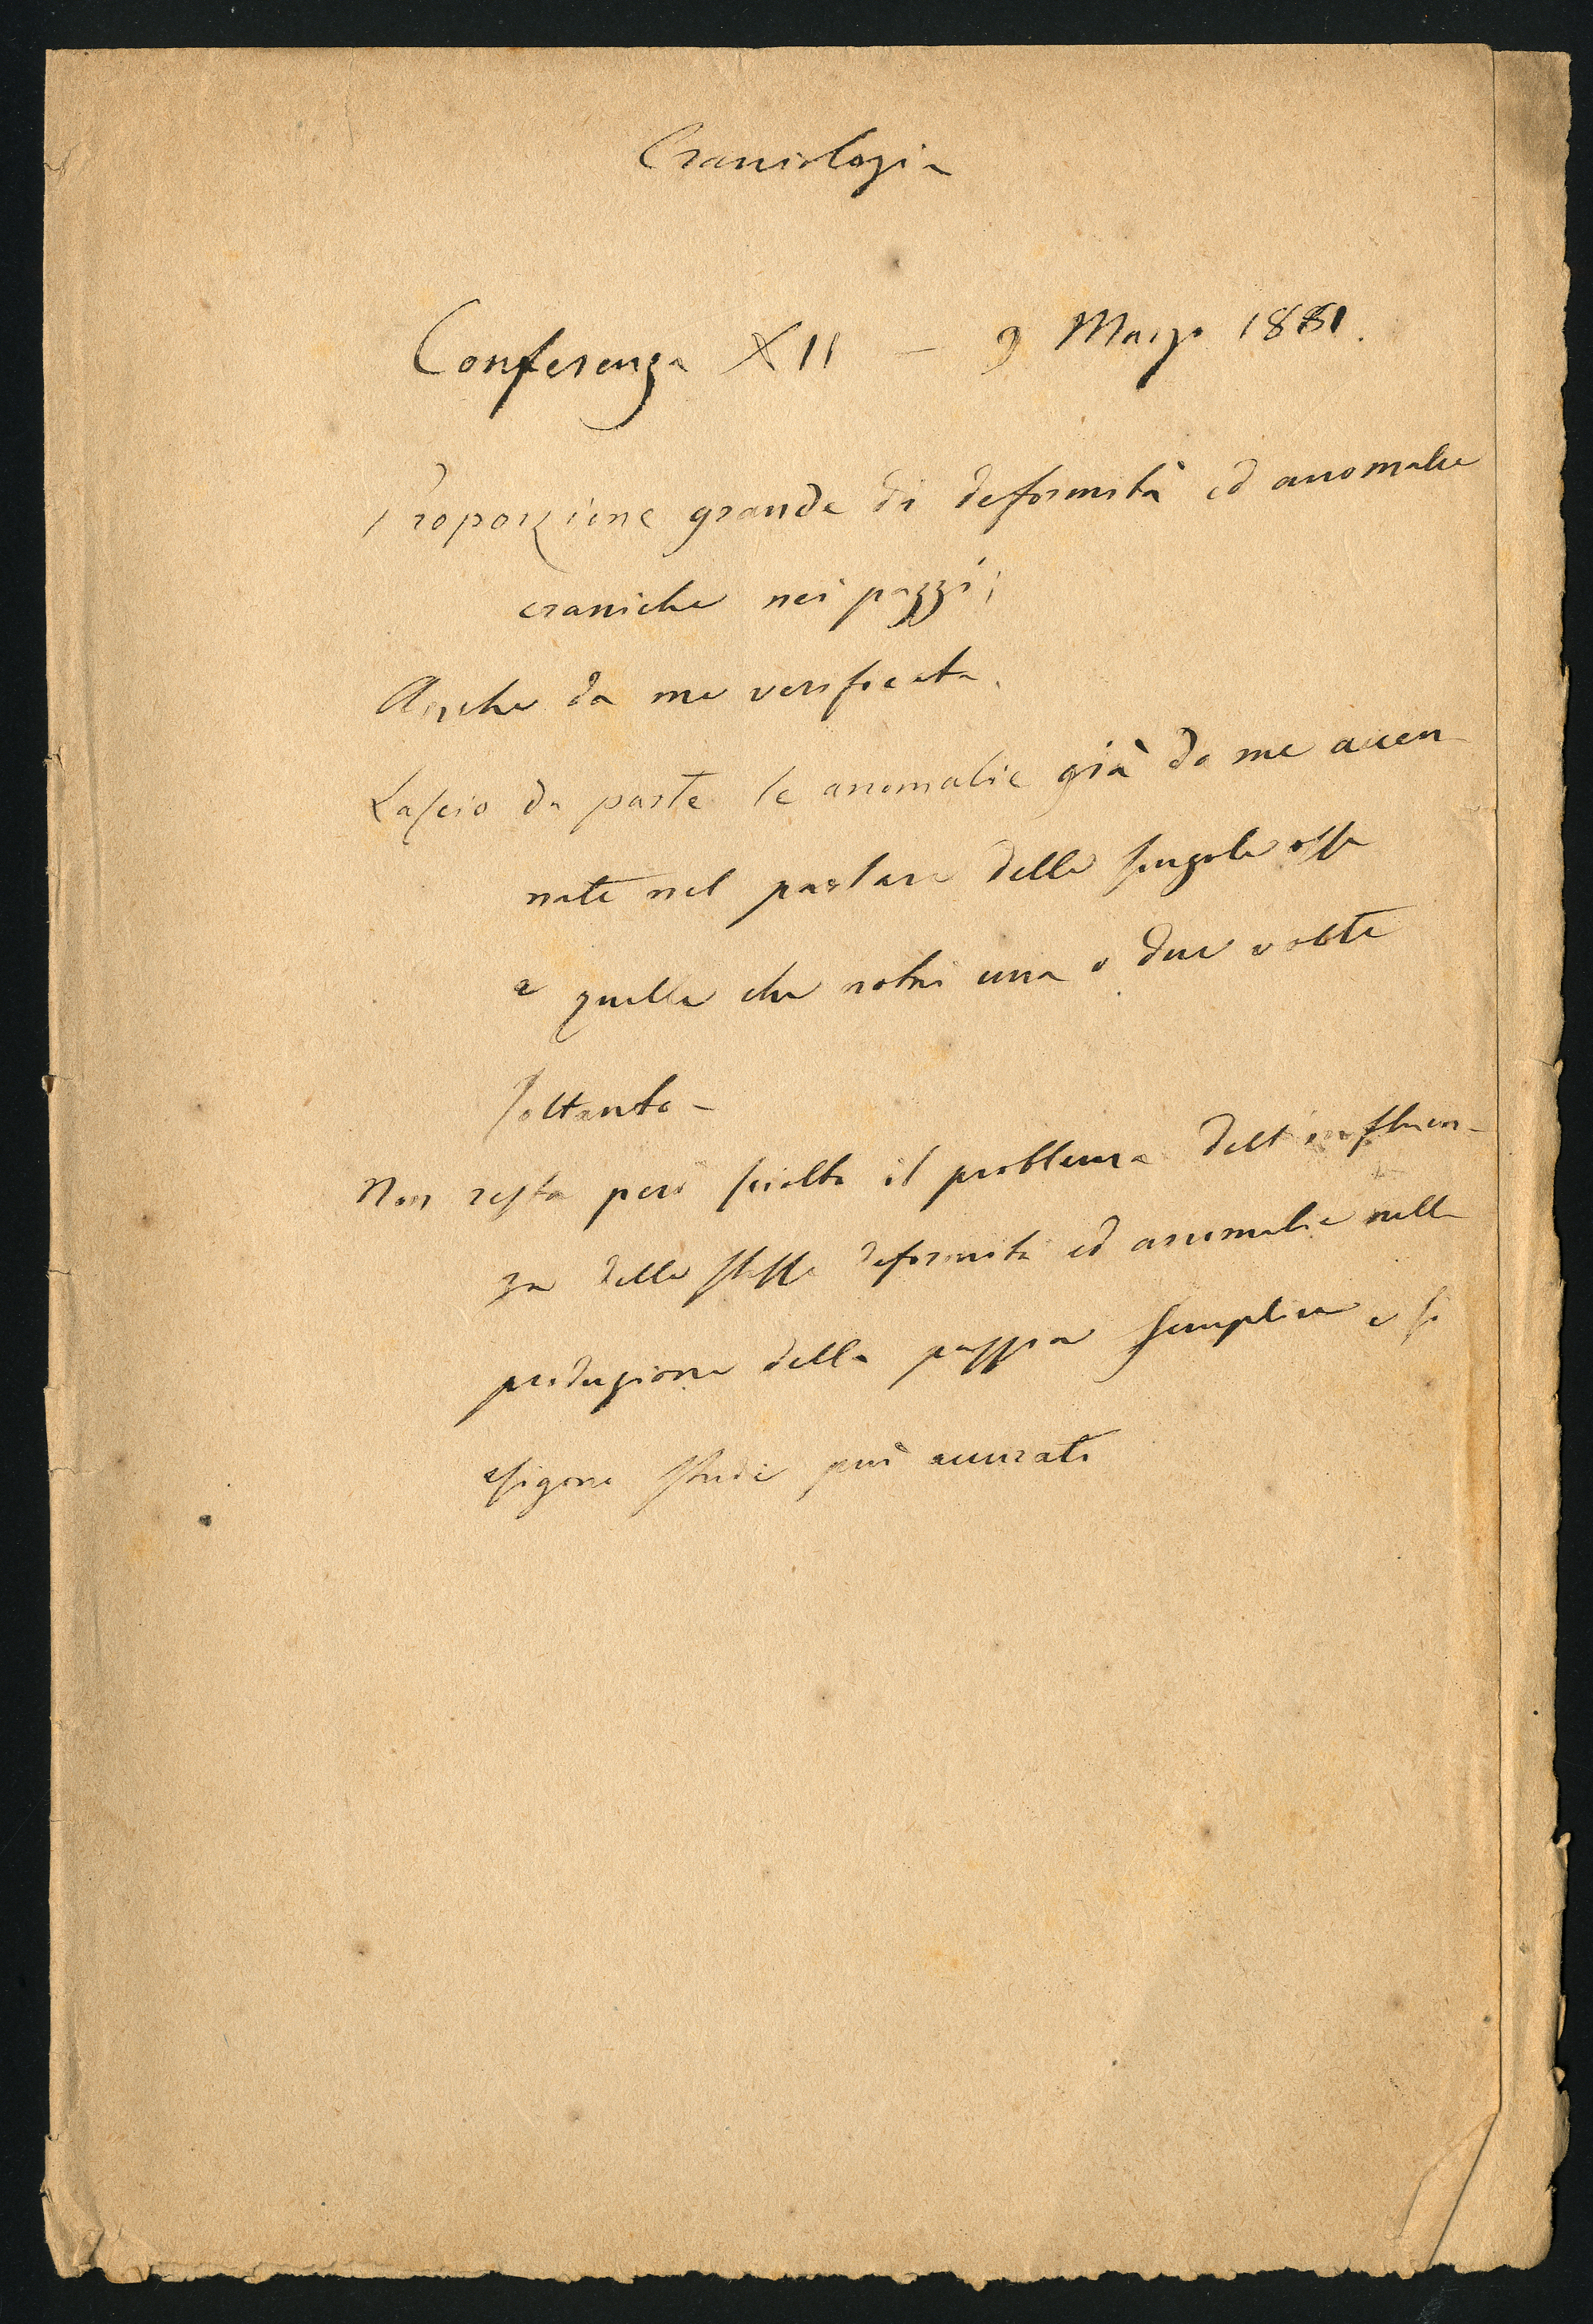 Craniologia
Conferenza XII — 9 Marzo 1881.
Proporzione grande di deformità ed anomalie
craniche nei pazzi;
Anche da me verificata.
Lascio da parte le anomalie già da me accen
nate nel parlare delle singole ossa
e quelle che notai una o due volte
soltanto –
Non resta però sciolto il problema dell'influen-
za delle stesse deformità ed anomalie nella
produzione della pazzia semplice e si
esigono studi più accurati